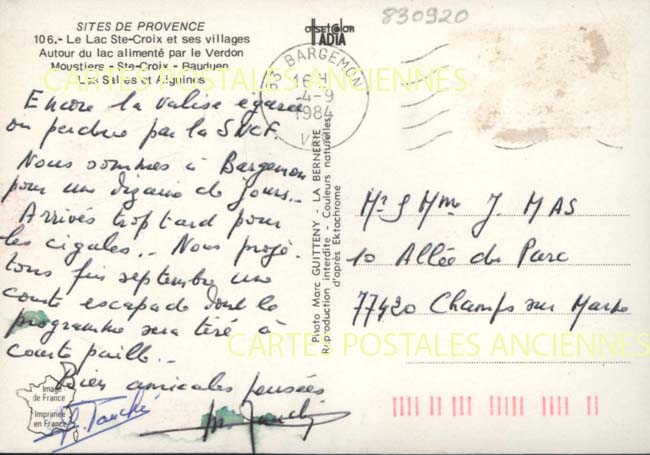 SITES DE PROVENCE
106.- Le Lac Ste-Croix et ses villages
Autour du lac alimenté par le Verdon
Moustiers - Ste-Croix - Bauduen
Les Salles et Aiguines
Offset Color
IADIA
830920
83 BARGEMON
16 H
4-9
1984
VAR
CARTES POSTALES ANCIENNES
Encore la valise égarée
ou perdue par la SNCF.
Nous sommes à Bargemon
pour une dizaine de jours...
Arrivés trop tard pour
les cigales... Nous proje-
tons fin septembre une
courte escapade dont le
programme sera tiré à
courte paille...
Bien amicales pensées
Photo Marc GUITTENY - LA BERNERIE
Reproduction interdite - Couleurs naturelles
d'après Ektachrome
Mr & Mme J. MAS
10 Allée du Parc
77420 Champs sur Marne
CARTES POSTALES ANCIENNES
Image
de France
Imprimée
en France